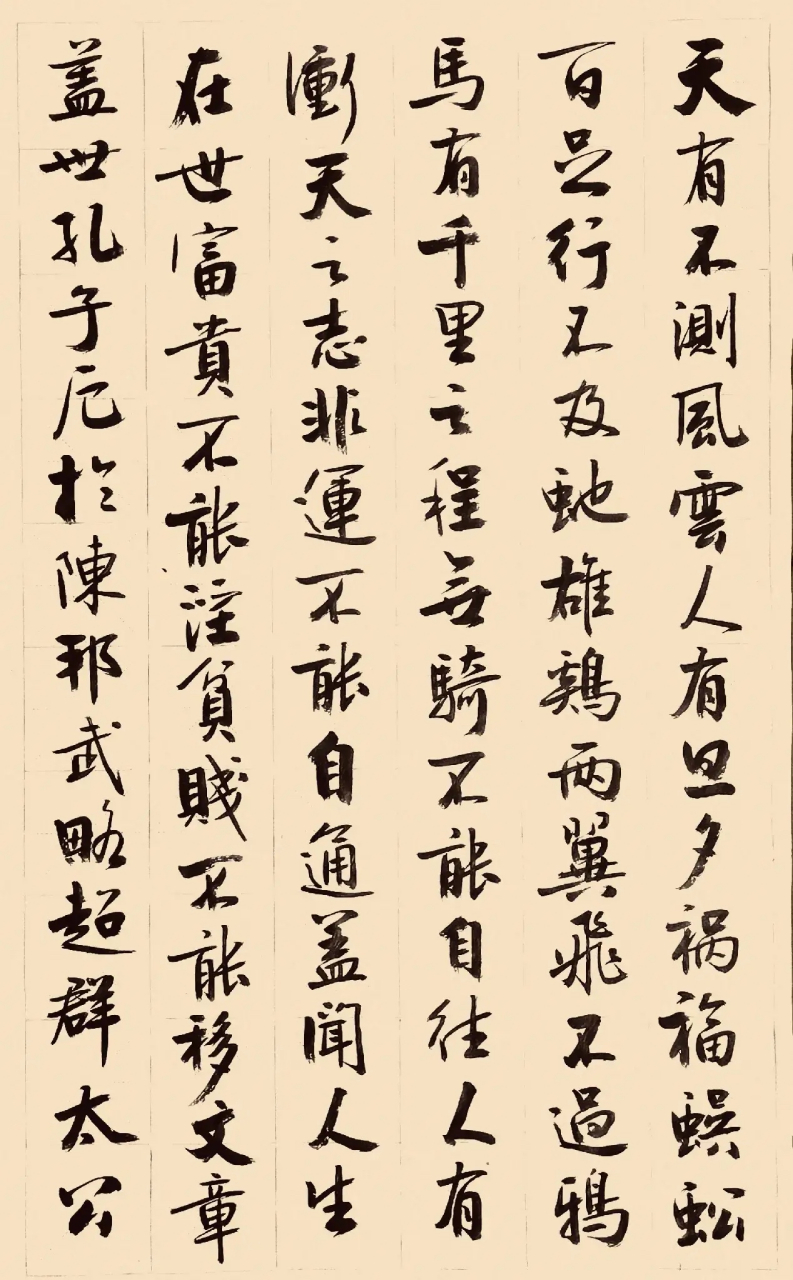 天有不測風雲人有旦夕禍福蜈蚣
百足行不及虵雄鷄兩翼飛不過鴉
馬有千里之程無騎不能自往人有
衝天之志非運不能自通蓋聞人生
在世富貴不能淫貧賤不能移文章
蓋世孔子厄於陳邦武略超群太公